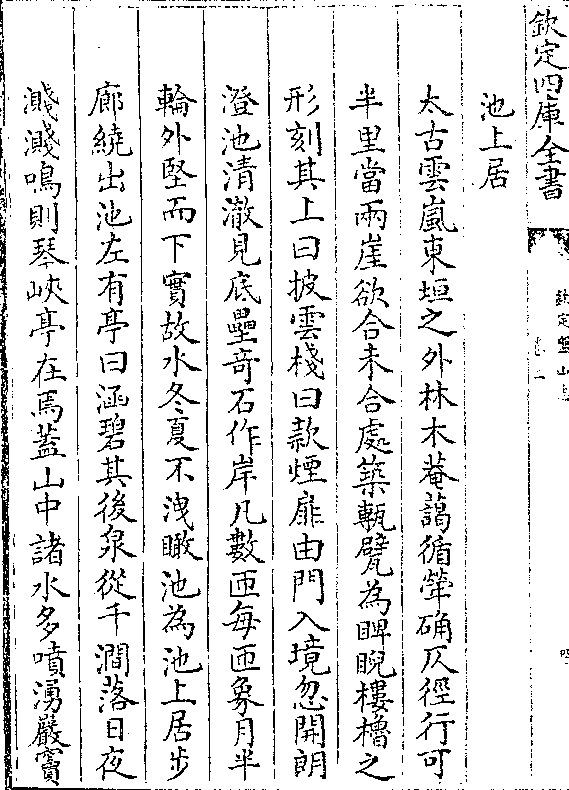 欽定四庫全書
欽定盤山志
卷二
池上居
太古雲嵐東垣之外林木菴藹循犖确仄徑行可
半里當兩崖欲合未合處築甎甓為睥睨樓櫓之
形刻其上曰披雲棧曰款煙扉由門入境忽開朗
澄池清澈見底壘奇石作岸凡數匝每匝象月半
輪外堅而下實故水冬夏不洩瞰池為池上居步
廊繞出池左有亭曰涵碧其後泉從千澗落日夜
濺濺鳴則琴峽亭在焉蓋山中諸水多噴湧巖竇